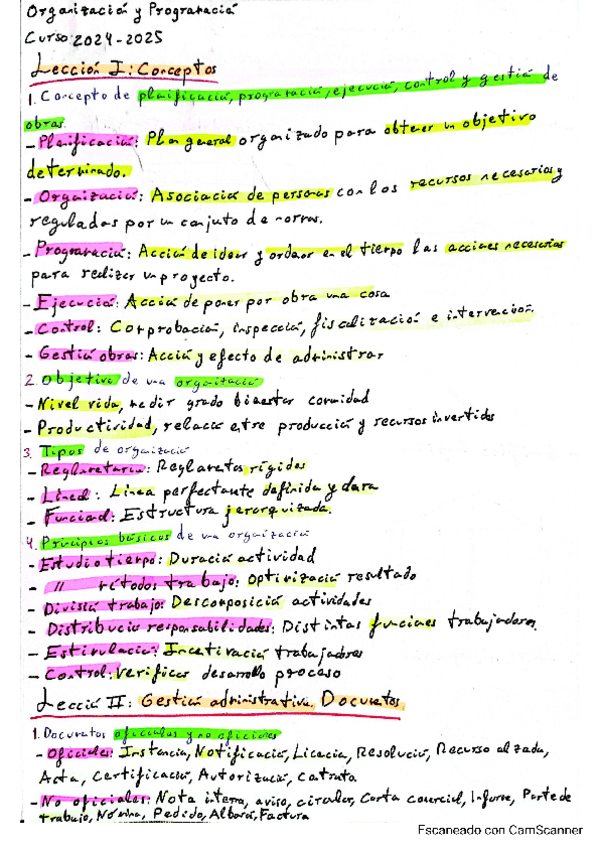 Organización y Programación
Curso 2024-2025
Lección I: Conceptos
1. Concepto de planificación, programación, ejecución, control y gestión de
obras.
- Planificación: Plan general organizado para obtener un objetivo
determinado.
- Organización: Asociación de personas con los recursos necesarios y
reguladas por un conjunto de normas.
- Programación: Acción de idear y ordenar en el tiempo las acciones necesarias
para realizar un proyecto.
- Ejecución: Acción de poner por obra una cosa
- Control: Comprobación, inspección, fiscalización e intervención.
- Gestión obras: Acción y efecto de administrar
2. Objetivo de una organización
- Nivel vida, medir grado bienestar comunidad
- Productividad, relación entre producción y recursos invertidos
3. Tipos de organización
- Reglamentaria: Reglamentos rígidos
- Lineal: Línea perfectamente definida y clara
- Funcional: Estructura jerarquizada.
4. Principios básicos de una organización
- Estudio tiempo: Duración actividad
- " métodos trabajo: Optimización resultado
- División trabajo: Descomposición actividades
- Distribución responsabilidades: Distintas funciones trabajadores.
- Estimulación: Incentivación trabajadores
- Control: verificar desarrollo proceso
Lección II: Gestión administrativa. Documentos
1. Documentos oficiales y no oficiales
- Oficiales: Instancia, Notificación, Licencia, Resolución, Recurso alzada,
Acta, Certificación, Autorización, Contrato.
- No oficiales: Nota interna, aviso, circular, Carta comercial, Informe, Parte de
trabajo, Nómina, Pedido, Albarán, Factura
Escaneado con CamScanner